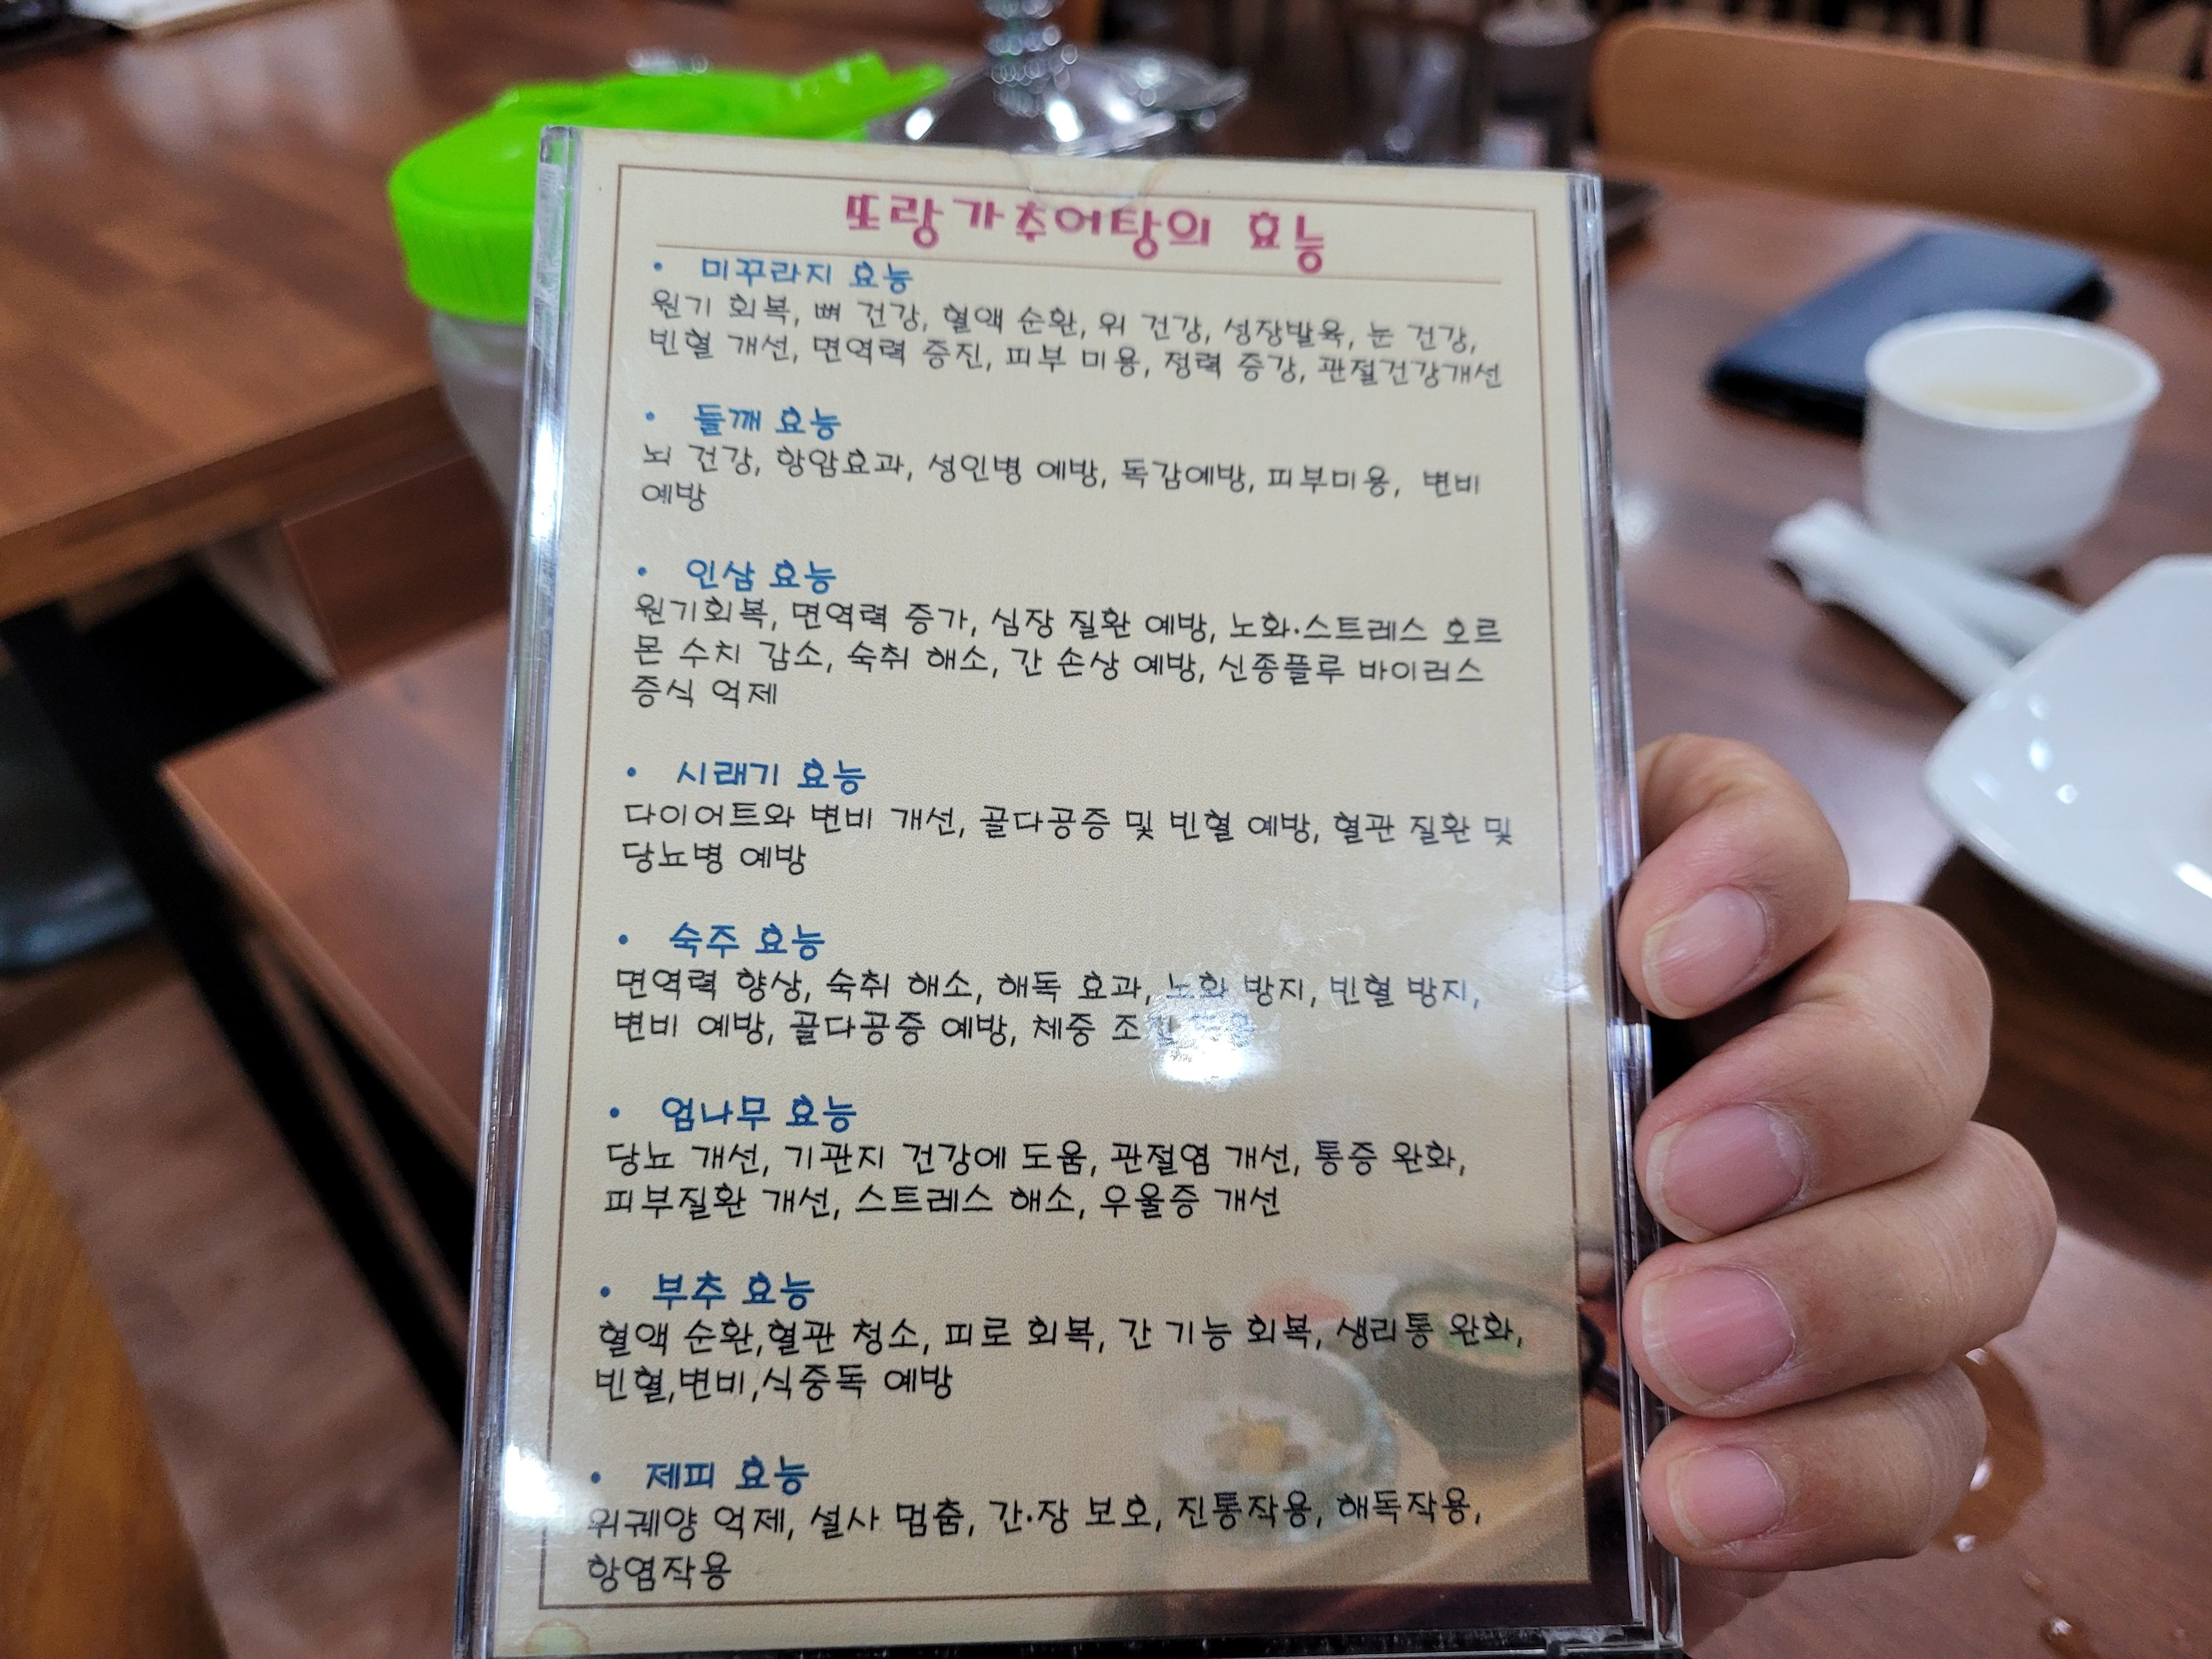 또랑가추어탕의 효능
• 미꾸라지 효능
원기 회복, 뼈 건강, 혈액 순환, 위 건강, 성장발육, 눈 건강,
빈혈 개선, 면역력 증진, 피부 미용, 정력 증강, 관절건강개선
• 들깨 효능
뇌 건강, 항암효과, 성인병 예방, 독감예방, 피부미용, 변비
예방
• 인삼 효능
원기회복, 면역력 증가, 심장 질환 예방, 노화·스트레스 호르
몬 수치 감소, 숙취 해소, 간 손상 예방, 신종플루 바이러스
증식 억제
• 시래기 효능
다이어트와 변비 개선, 골다공증 및 빈혈 예방, 혈관 질환 및
당뇨병 예방
• 숙주 효능
면역력 향상, 숙취 해소, 해독 효과, 노화 방지, 빈혈 방지,
변비 예방, 골다공증 예방, 체중
• 엄나무 효능
당뇨 개선, 기관지 건강에 도움, 관절염 개선, 통증 완화,
피부질환 개선, 스트레스 해소, 우울증 개선
• 부추 효능
혈액 순환,혈관 청소, 피로 회복, 간 기능 회복, 생리통 완화,
빈혈,변비,식중독 예방
• 제피 효능
위궤양 억제, 설사 멈춤, 간·장 보호, 진통작용, 해독작용,
항염작용